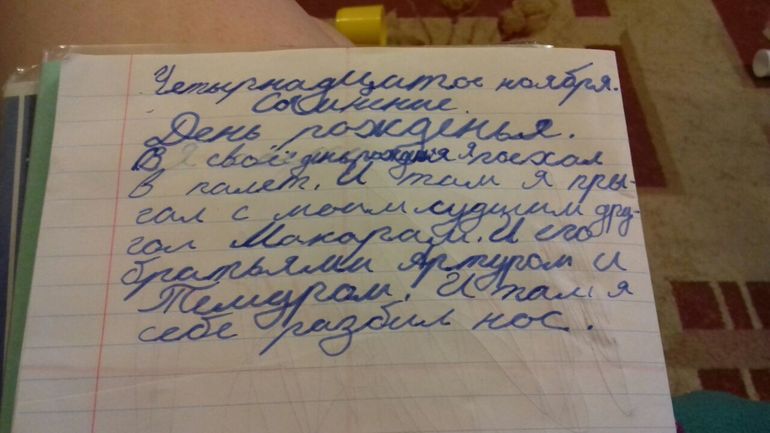 Четырнадцатое ноября.
Сочинение.
День рожденья.
В свой день рожденья я поехал
в палет. И там я пры-
гал с моим лудшим дру-
гом Макарам. И его
братьями Артуром и
Темуром. И там я
себе разбил нос.